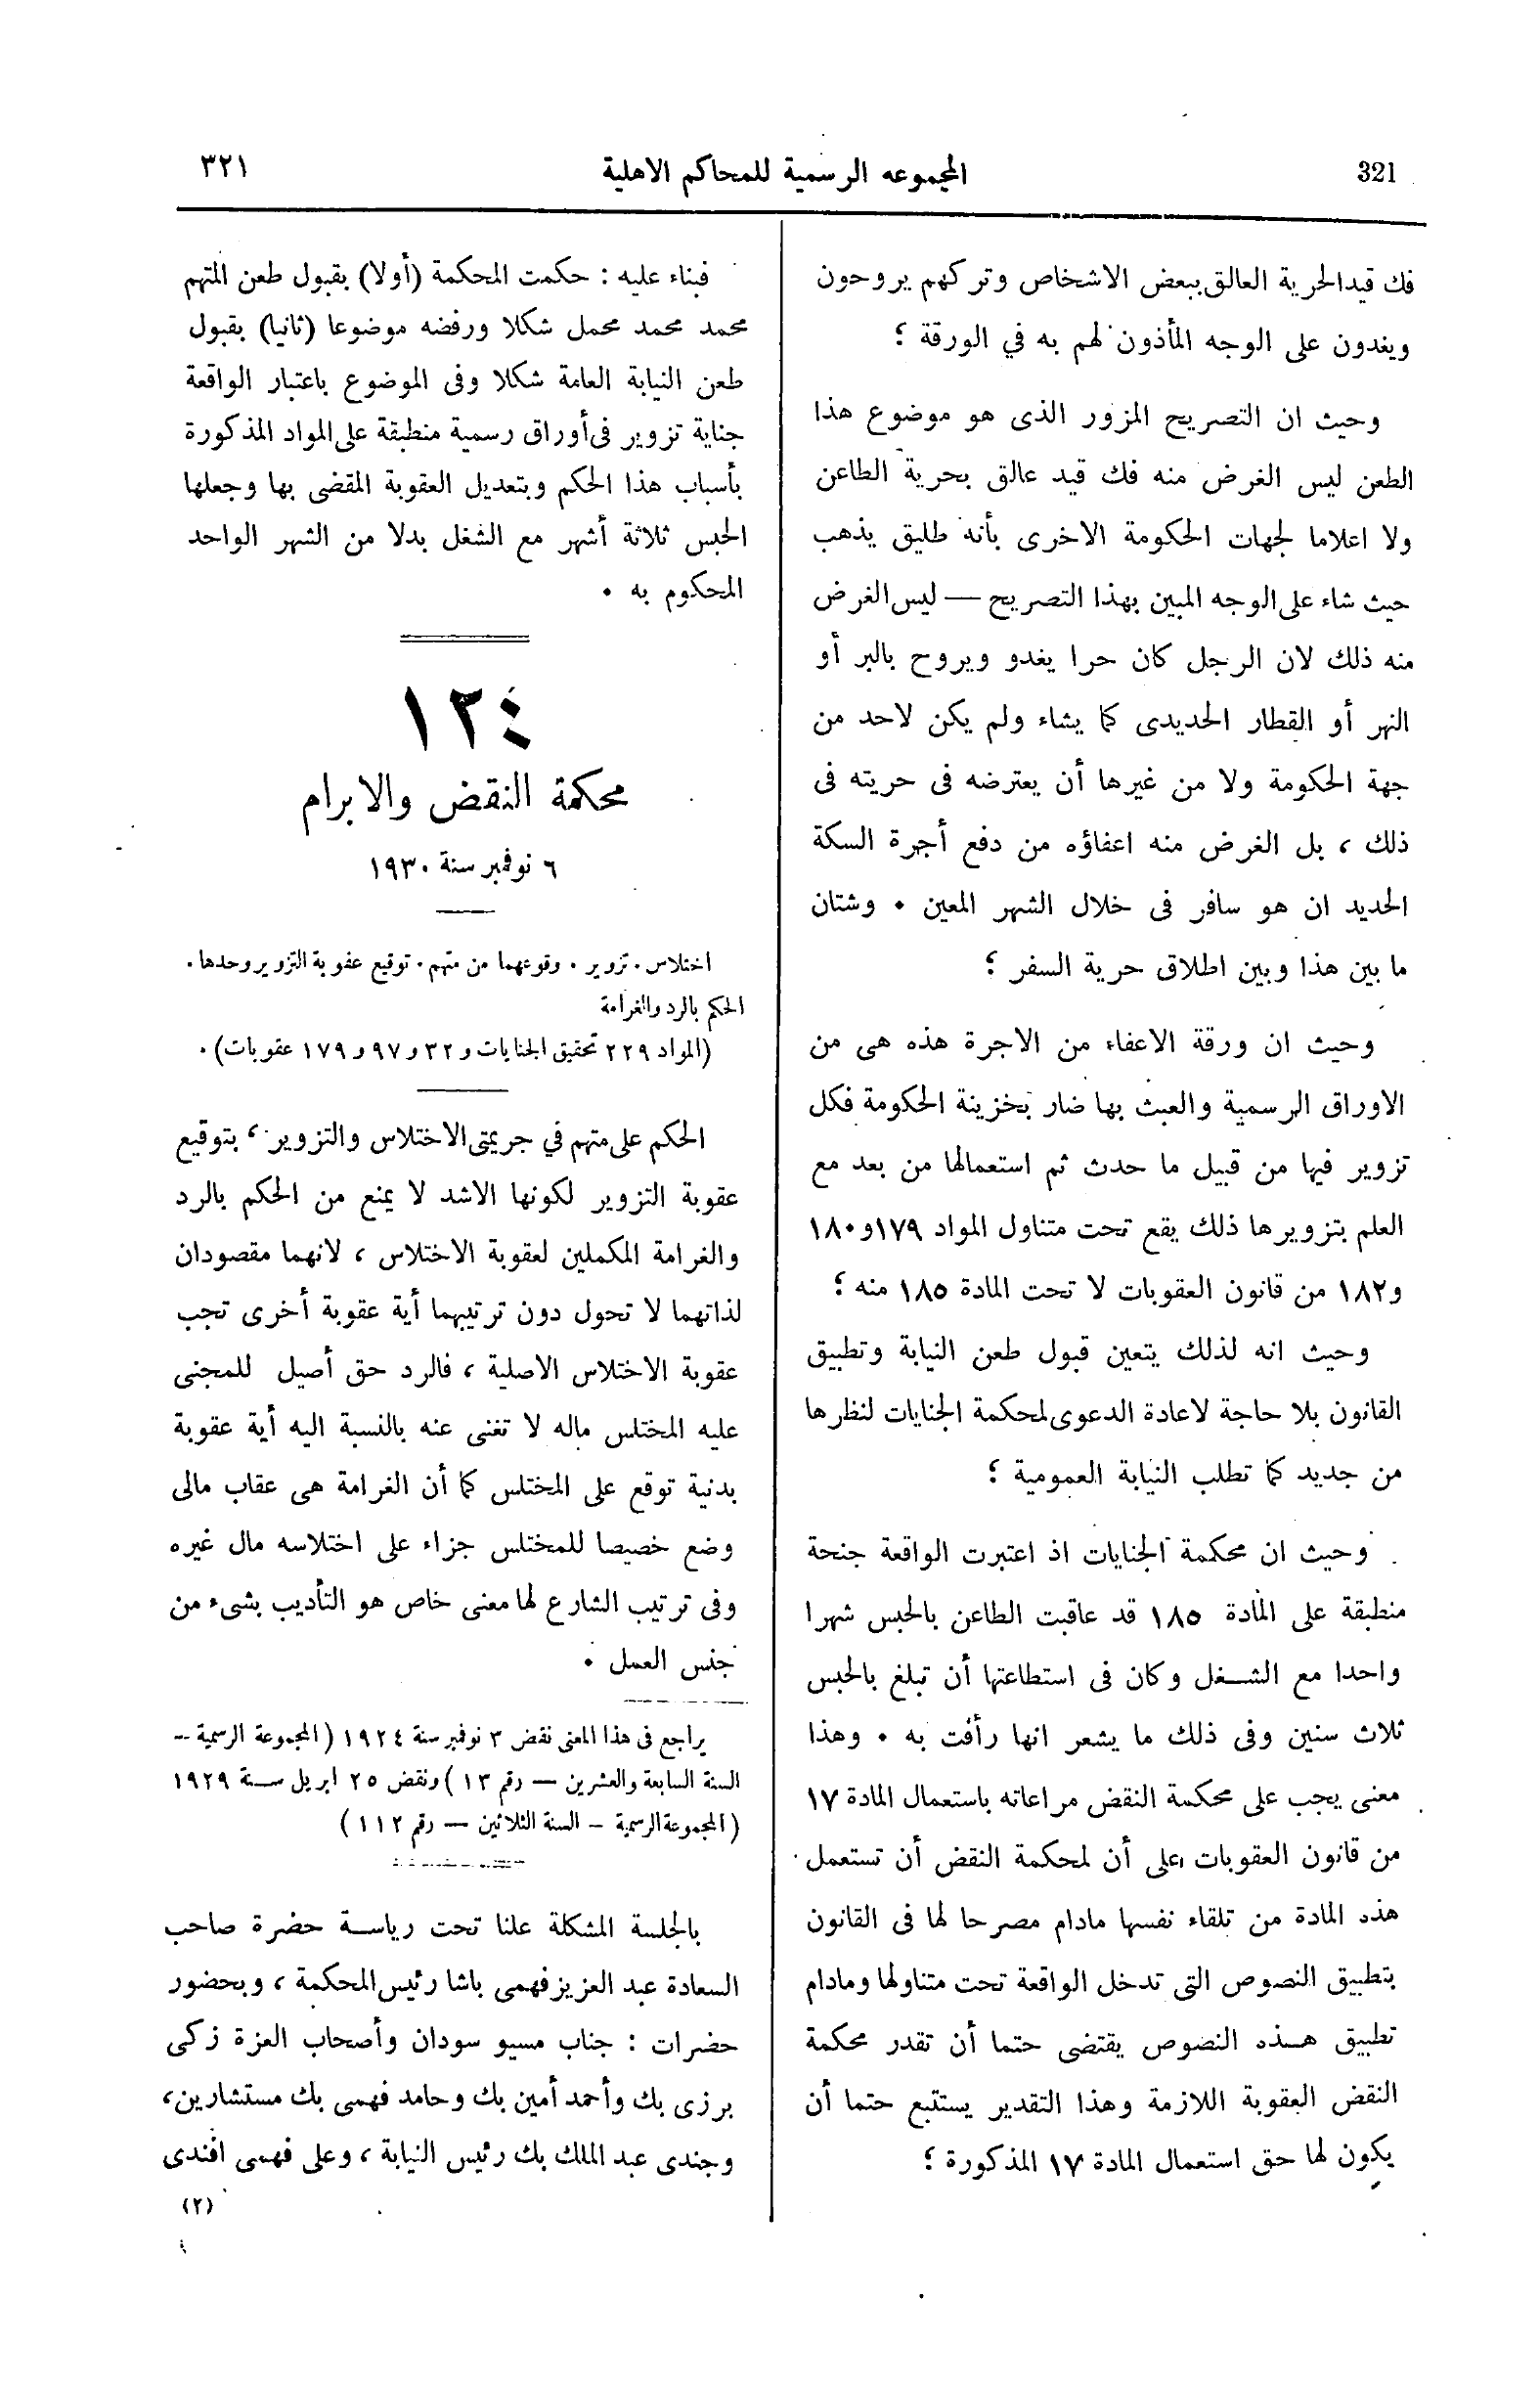 321
المجموعه الرسمية للمحاكم الاهلية
٣٢١
فك قيد الحرية العالق ببعض الاشخاص وتركهم يروحون
ويغدون على الوجه المأذون لهم به في الورقة ؛
وحيث ان التصريح المزور الذى هو موضوع هذا
الطعن ليس الغرض منه فك قيد عالق بحرية الطاعن
ولا اعلاما لجهات الحكومة الاخرى بأنه طليق يذهب
حيث شاء على الوجه المبين بهذا التصريح — ليس الغرض
منه ذلك لان الرجل كان حرا يغدو ويروح بالبر أو
النهر أو القطار الحديدى كما يشاء ولم يكن لاحد من
جهة الحكومة ولا من غيرها أن يعترضه فى حريته فى
ذلك ، بل الغرض منه اعفاؤه من دفع أجرة السكة
الحديد ان هو سافر فى خلال الشهر المعين ٠ وشتان
ما بين هذا وبين اطلاق حرية السفر ؛
وحيث ان ورقة الاعفاء من الاجرة هذه هى من
الاوراق الرسمية والعبث بها ضار بخزينة الحكومة فكل
تزوير فيها من قبيل ما حدث ثم استعمالها من بعد مع
العلم بتزويرها ذلك يقع تحت متناول المواد ١٧٩و١٨٠
و١٨٢ من قانون العقوبات لا تحت المادة ١٨٥ منه ؛
وحيث انه لذلك يتعين قبول طعن النيابة وتطبيق
القانون بلا حاجة لاعادة الدعوى لمحكمة الجنايات لنظرها
من جديد كما تطلب النيابة العمومية ؛
وحيث ان محكمة الجنايات اذ اعتبرت الواقعة جنحة
منطبقة على المادة ١٨٥ قد عاقبت الطاعن بالحبس شهرا
واحدا مع الشغل وكان فى استطاعتها أن تبلغ بالحبس
ثلاث سنين وفى ذلك ما يشعر انها رأفت به ٠ وهذا
معنى يجب على محكمة النقض مراعاته باستعمال المادة ١٧
من قانون العقوبات على أن لمحكمة النقض أن تستعمل
هذه المادة من تلقاء نفسها مادام مصرحا لها فى القانون
بتطبيق النصوص التى تدخل الواقعة تحت متناولها ومادام
تطبيق هذه النصوص يقتضى حتما أن تقدر محكمة
النقض العقوبة اللازمة وهذا التقدير يستتبع حتما أن
يكون لها حق استعمال المادة ١٧ المذكورة ؛
فبناء عليه : حكمت المحكمة (أولا) بقبول طعن المتهم
محمد محمد محمل شكلا ورفضه موضوعا (ثانيا) بقبول
طعن النيابة العامة شكلا وفى الموضوع باعتبار الواقعة
جناية تزوير فى أوراق رسمية منطبقة على المواد المذكورة
بأسباب هذا الحكم وبتعديل العقوبة المقضى بها وجعلها
الحبس ثلاثة أشهر مع الشغل بدلا من الشهر الواحد
المحكوم به ٠
١٣٤
محكمة النقض والابرام
٦ نوفمبر سنة ١٩٣٠
اختلاس ٠ تزوير ٠ وقوعهما من متهم ٠ توقيع عقوبة التزوير وحدها ٠
الحكم بالرد والغرامة
(المواد ٢٢٩ تحقيق الجنايات و ٣٢ و ٩٧ و ١٧٩ عقوبات) ٠
الحكم على متهم في جريمتى الاختلاس والتزوير ، بتوقيع
عقوبة التزوير لكونها الاشد لا يمنع من الحكم بالرد
والغرامة المكملين لعقوبة الاختلاس ، لانهما مقصودان
لذاتهما لا تحول دون ترتيبهما أية عقوبة أخرى تجب
عقوبة الاختلاس الاصلية ، فالرد حق أصيل للمجنى
عليه المختلس ماله لا تغنى عنه بالنسبة اليه أية عقوبة
بدنية توقع على المختلس كما أن الغرامة هى عقاب مالى
وضع خصيصا للمختلس جزاء على اختلاسه مال غيره
وفى ترتيب الشارع لها معنى خاص هو التأديب بشىء من
جنس العمل ٠
يراجع فى هذا المعنى نقض ٣ نوفمبر سنة ١٩٢٤ (المجموعة الرسمية —
السنة السابعة والعشرين — رقم ١٣ ) ونقض ٢٥ ابريل سنة ١٩٢٩
(المجموعة الرسمية — السنة الثلاثين — رقم ١١٢ )
بالجلسة المشكلة علنا تحت رياسة حضرة صاحب
السعادة عبد العزيز فهمى باشا رئيس المحكمة ، وبحضور
حضرات : جناب مسيو سودان وأصحاب العزة زكى
برزى بك وأحمد أمين بك وحامد فهمى بك مستشارين،
وجندى عبد الملك بك رئيس النيابة ، وعلى فهمى افندى
(٢)